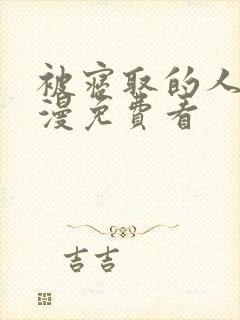 被窃取的人
漫免費看
吉吉